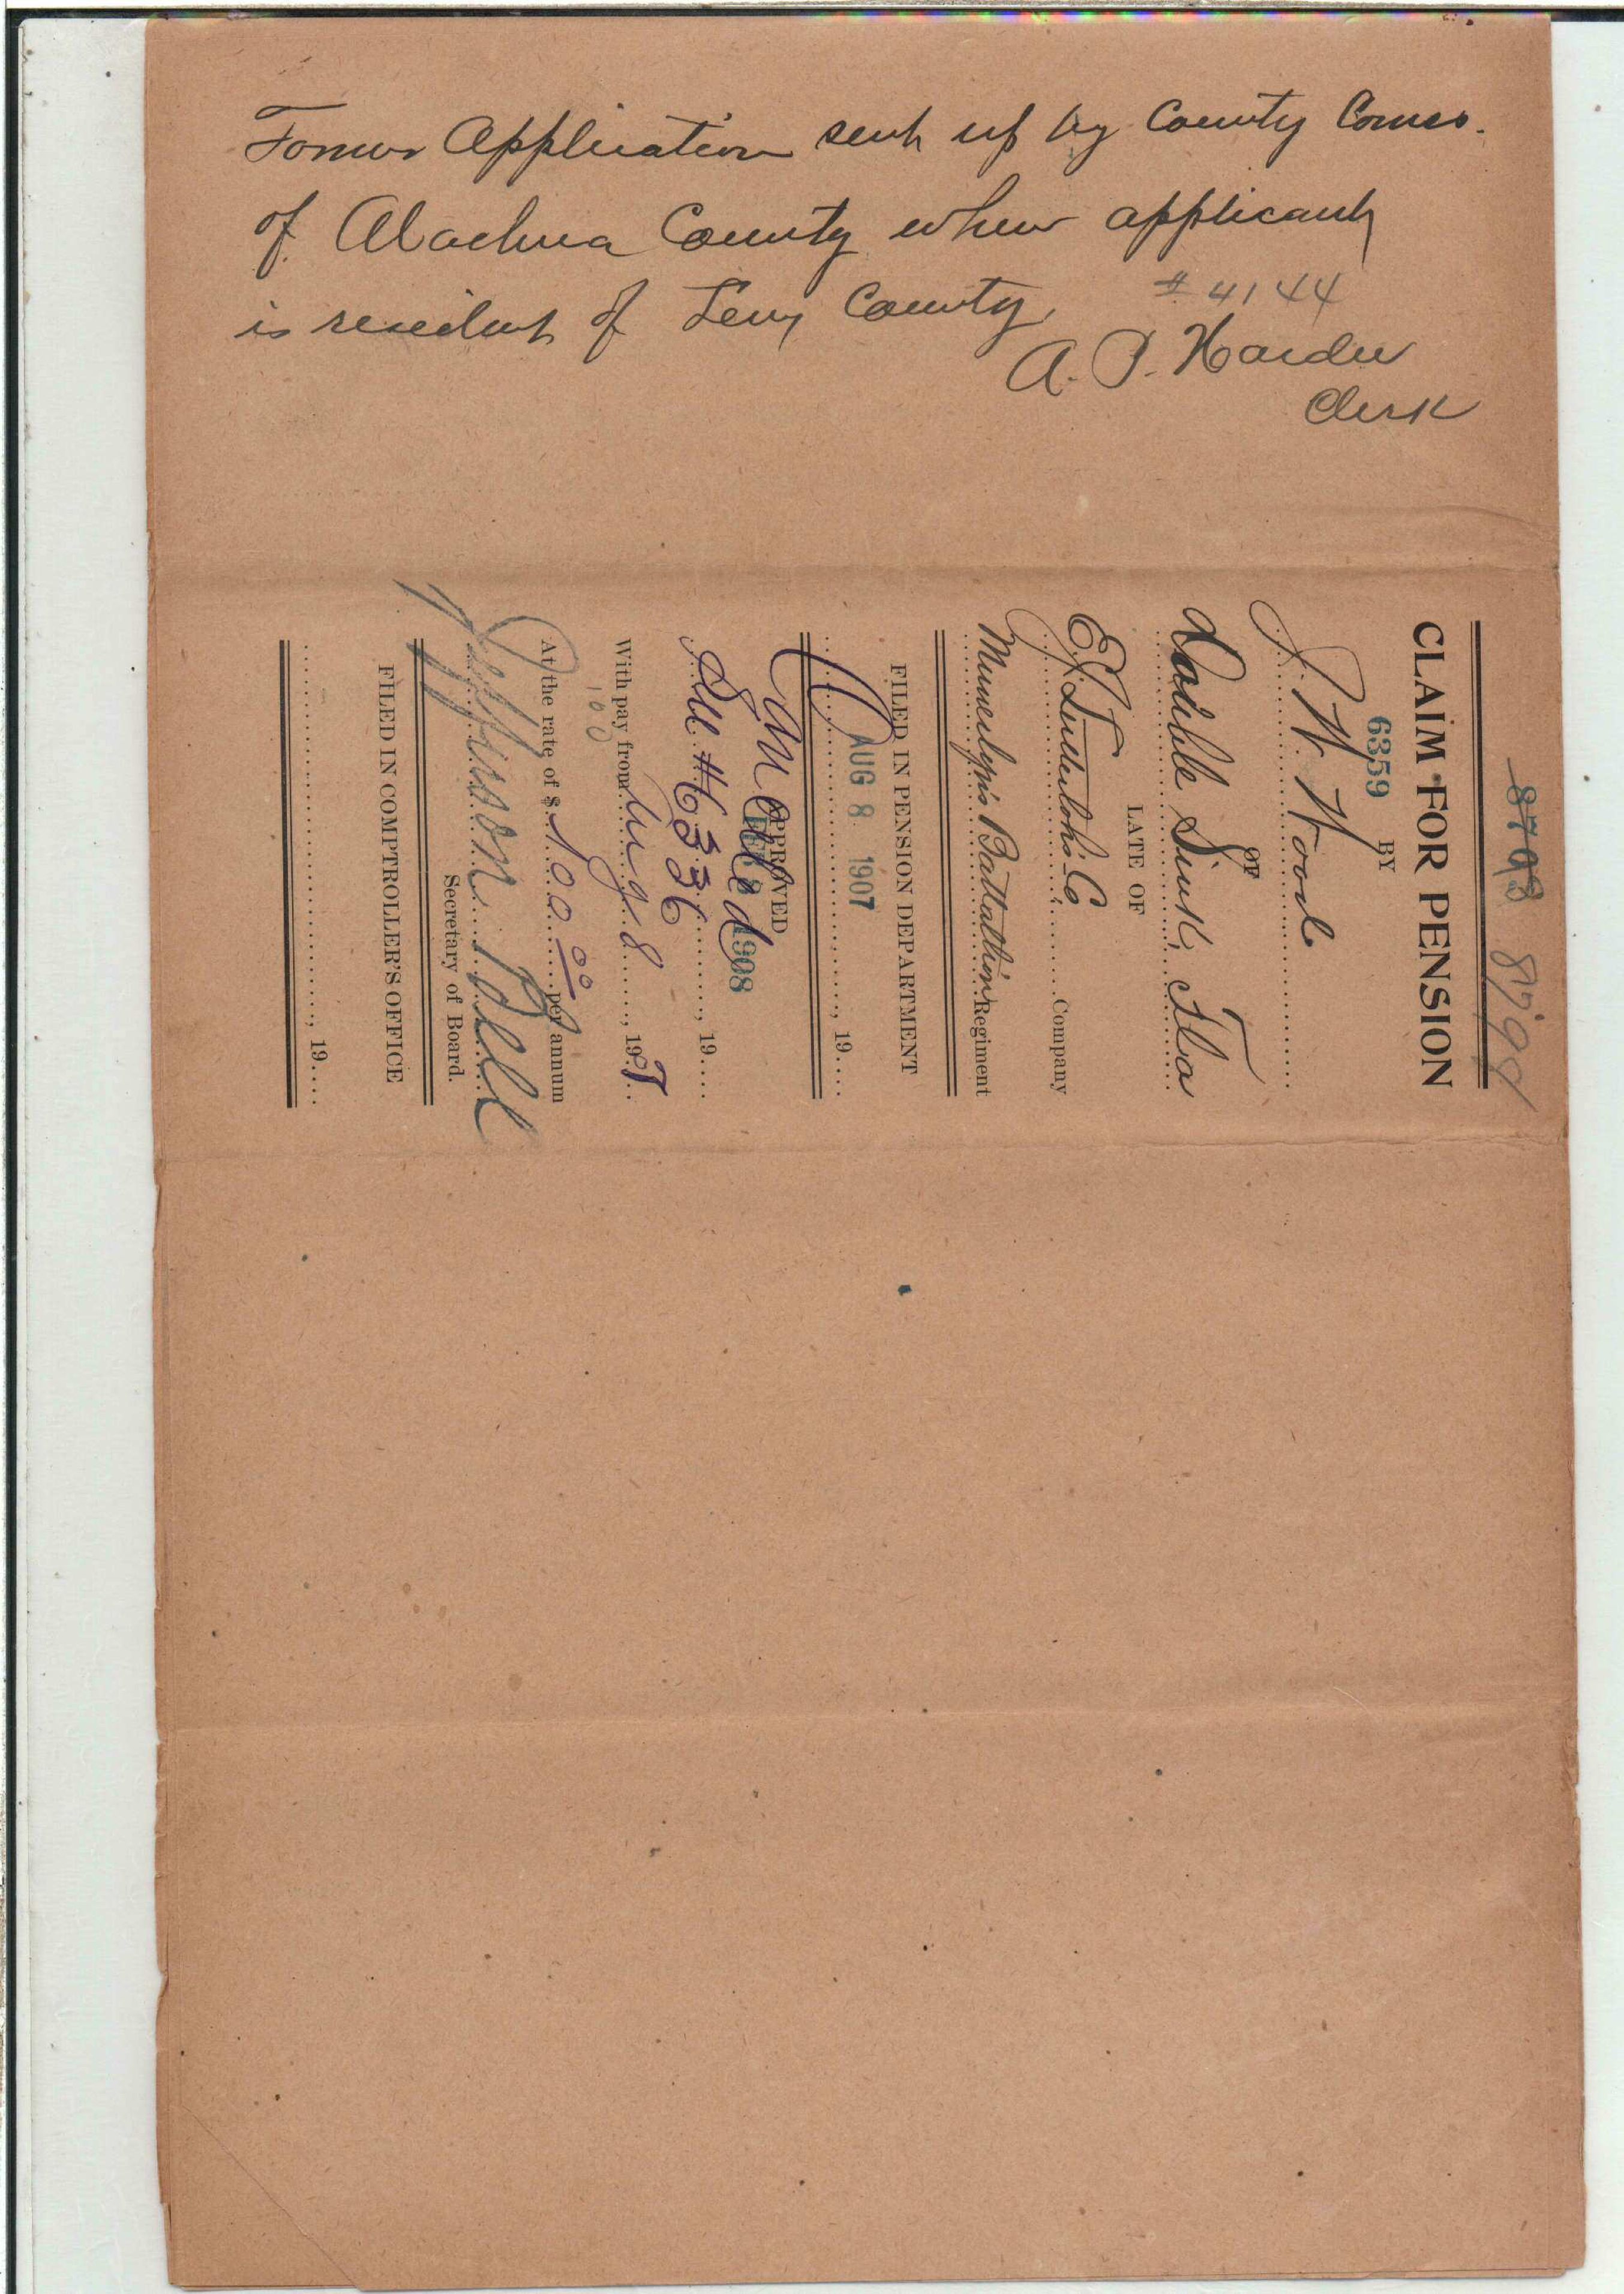 Former Application sent up by County Comrs.
of Alachua County when applicant
is resident of Levy County.
# 4144
A. P. Hardee
Clerk
8798
CLAIM FOR PENSION
6359 BY
J. W. Wood
OF
Double Sink Fla
LATE OF
E. J. Co. Company
Munnerlyn's Battallion Regiment
FILED IN PENSION DEPARTMENT
AUG 8 1907
, 19
APPROVED
1908
#6336, 19
With pay from Aug 8, 1907
100
At the rate of $ 100 00 per annum
Jefferson Bell
Secretary of Board.
FILED IN COMPTROLLER'S OFFICE
, 19